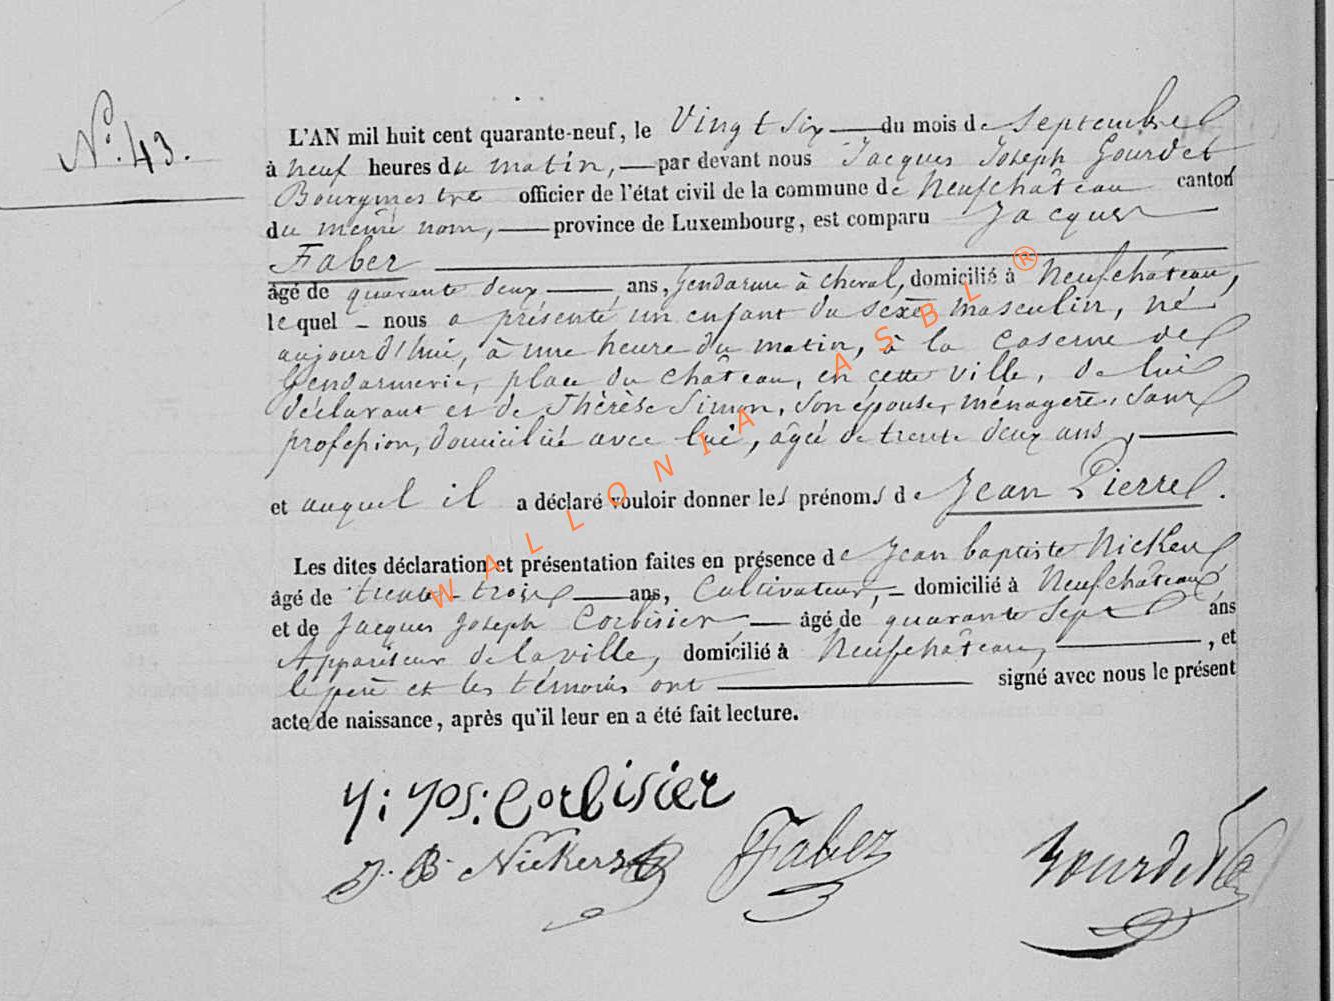 N.° 43.
L'AN mil huit cent quarante-neuf, le Vingt six du mois de Septembre
à neuf heures du matin, par devant nous Jacques Joseph Gourdet
Bourgmestre officier de l'état civil de la commune de Neufchâteau canton
du même nom, province de Luxembourg, est comparu Jacques
Faber
âgé de quarante deux ans, gendarme à cheval, domicilié à Neufchâteau,
lequel nous a présenté un enfant du sexe masculin, né
aujourd'hui, à une heure du matin, à la caserne de
Gendarmerie, place du château, en cette ville, de lui
déclarant et de Thérèse Simon, son épouse, ménagère, sans
profession, domiciliée avec lui, âgée de trente deux ans,
et auquel il a déclaré vouloir donner les prénoms de Jean Pierre.
Les dites déclaration et présentation faites en présence de Jean baptiste Nickers
âgé de trente-trois ans, Cultivateur, domicilié à Neufchâteau
et de Jacques Joseph Corbisier âgé de quarante Sept ans
Appariteur de la ville, domicilié à Neufchâteau, , et
le père et les témoins ont signé avec nous le présent
acte de naissance, après qu'il leur en a été fait lecture.
J: Jos: Corbisier
J. B. Nickers Faber Gourdet
WALLONIA ASBL ®